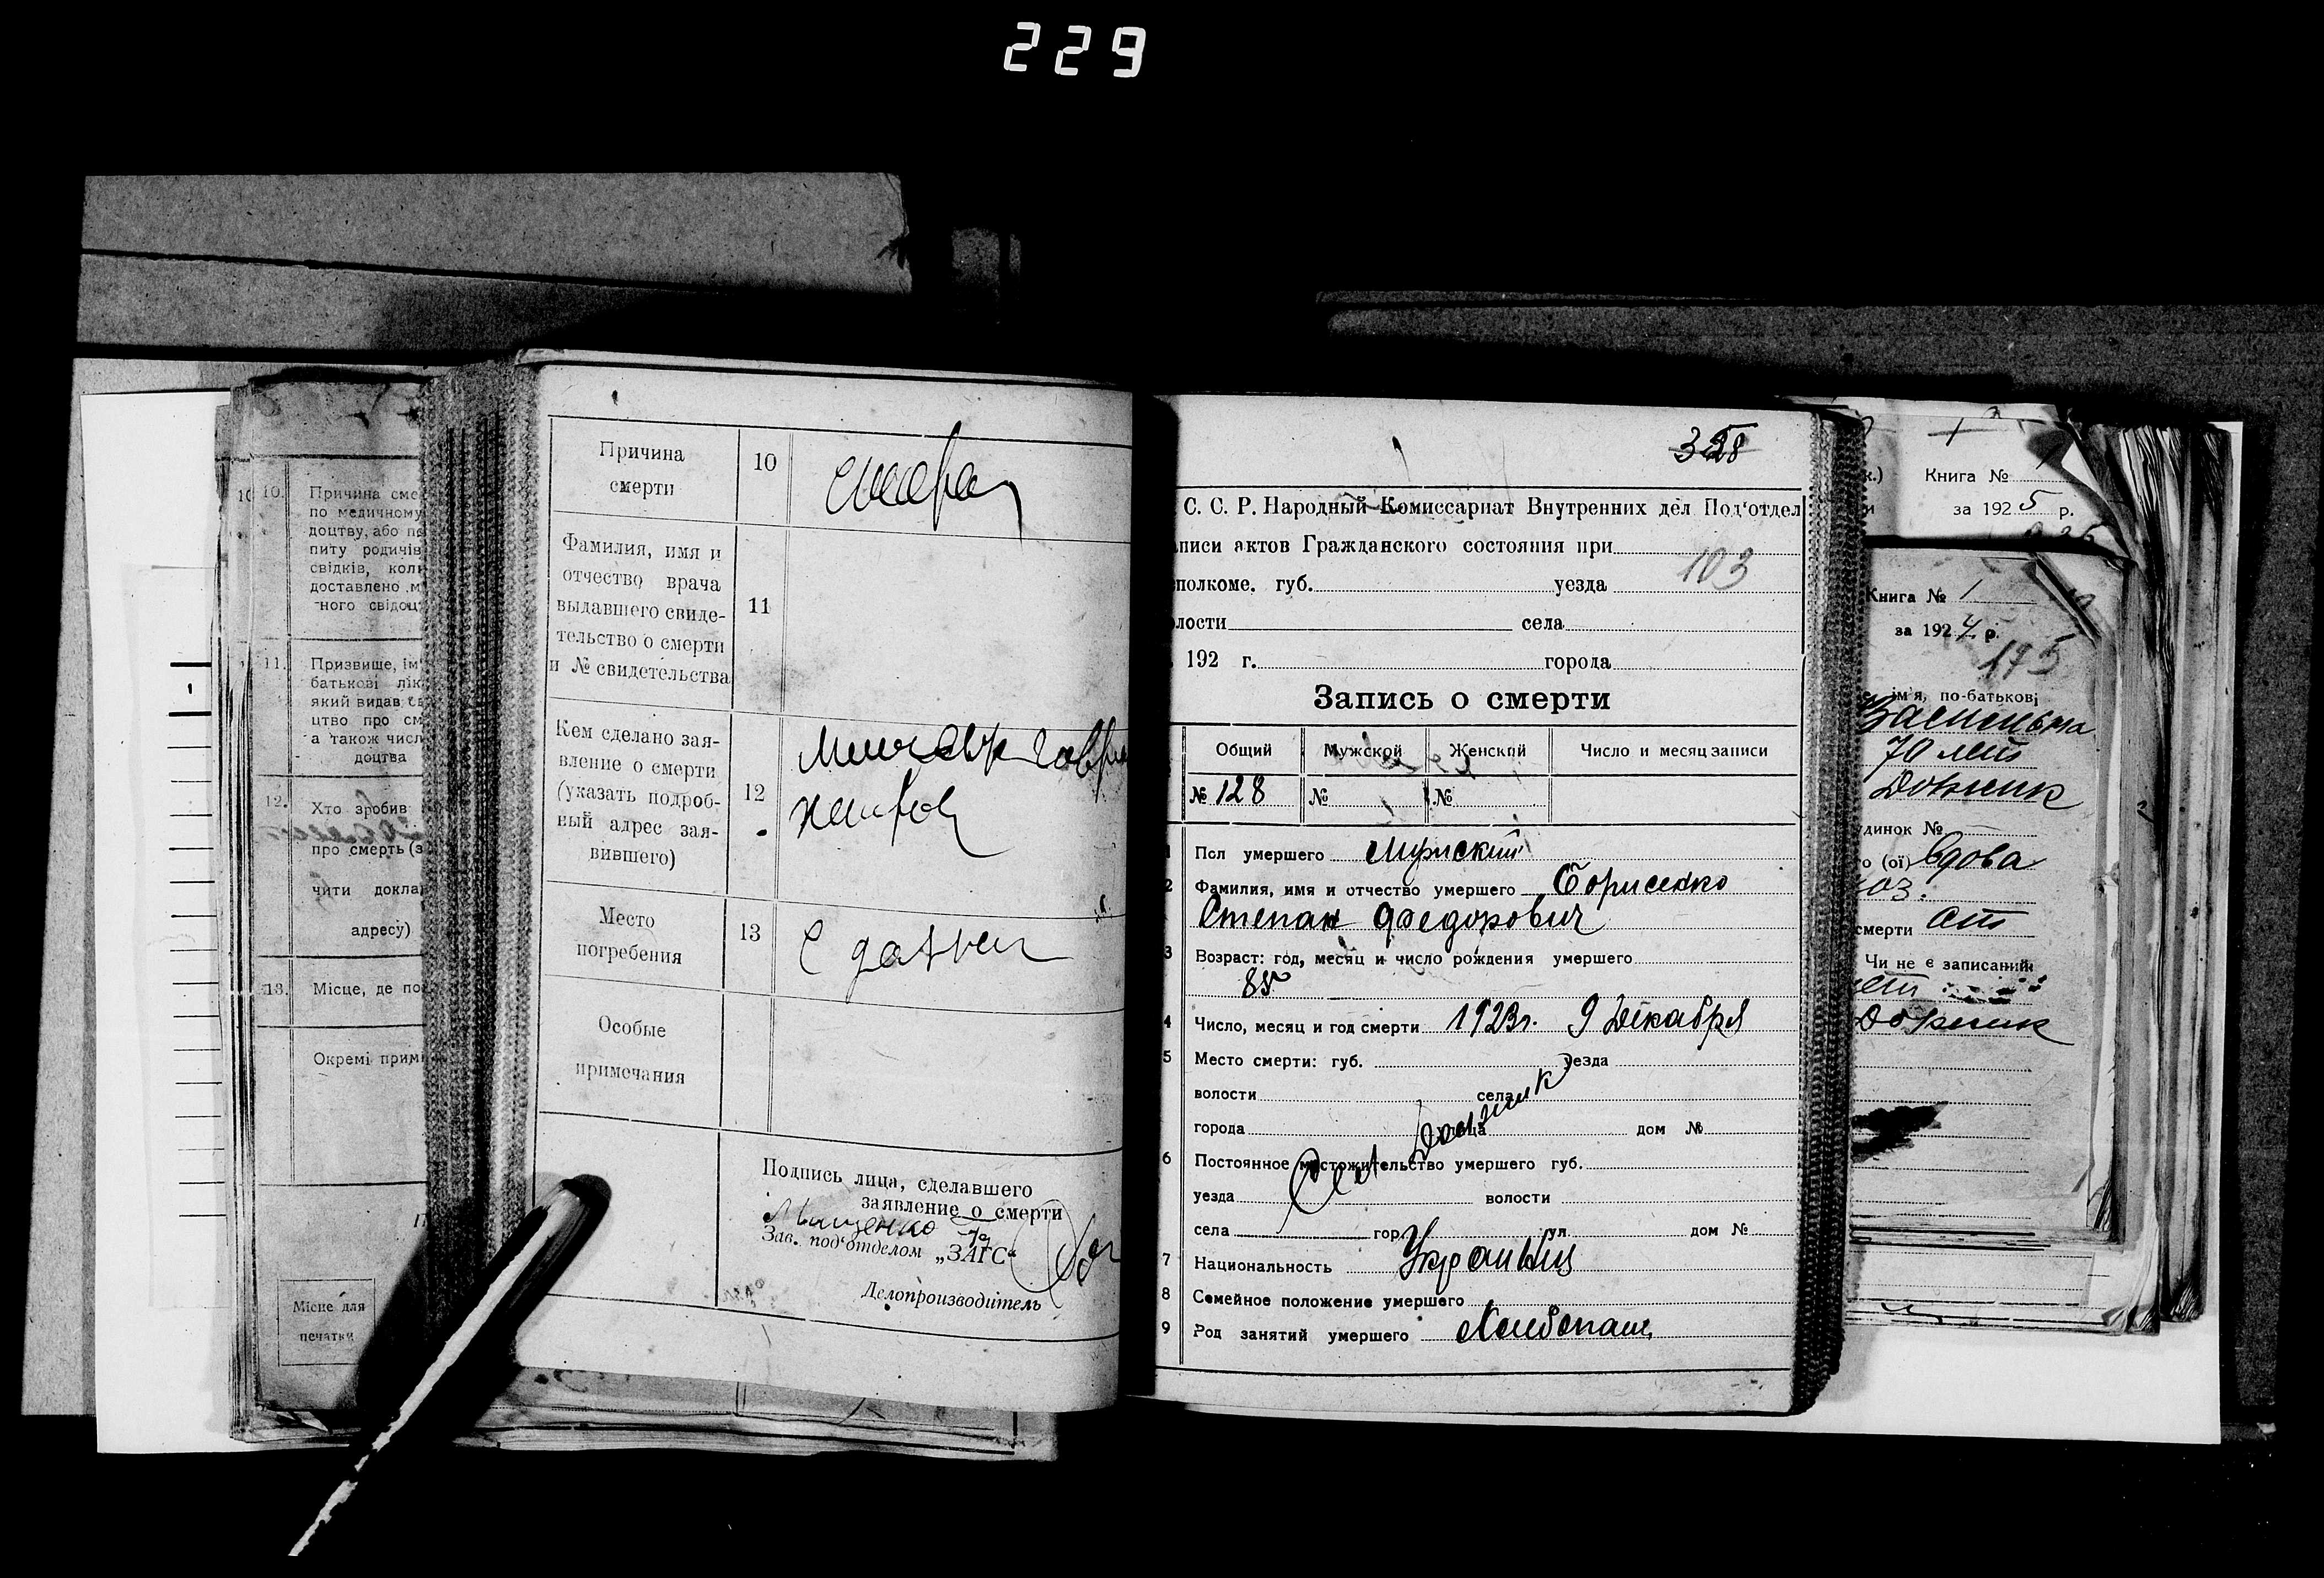 229
10.
Причина сме
по медичному
доцтву, або по
питу родичів
свідків, кол
доставлено м
ного свідоц
11.
Призвище, ім
батькові лік
який видав с
цтво про см
а також числ
доцтва
12.
Хто зробив
про смерть (з
чити докла
адресу)
13.
Місце, де по
Окремі прим
Місце для
печатки
Причина
смерти
10
Фамилия, имя и
отчество врача
выдавшего свиде-
тельство о смерти
и № свидетельства
11
Кем сделано зая-
вление о смерти
(указать подроб-
ный адрес зая-
вившего)
12
Место
погребения
13
Особые
примечания
Подпись лица, сделавшего
заявление о смерти
Мищенко
Зав. под'отделом „ЗАГС"
Делопроизводитель
С. С. Р. Народный Комиссариат Внутренних дел Под'отдел
писи актов Гражданского состояния при
103
полкоме. губ. уезда
лости села
192 г. города
Запись о смерти
Общий Мужской Женский Число и месяц записи
№ 128 № №
1 Пол умершего Мужской
2 Фамилия, имя и отчество умершего Борисенко
Степан Федорович
3 Возраст: год, месяц и число рождения умершего
85
4 Число, месяц и год смерти 1923г. 9 Декабря
5 Место смерти: губ. уезда
волости села
города улица дом №
6 Постоянное местожительство умершего губ.
уезда волости
села гор. ул. дом №
7 Национальность Украинец
8 Семейное положение умершего
9 Род занятий умершего Хлебопаш.
Книга № 1
за 1925 р.
Книга № 1
за 1924 р.
175
ім'я, по-батькові
70 лет
динок №
о (ої) вдова
смерти
Чи не є записаний